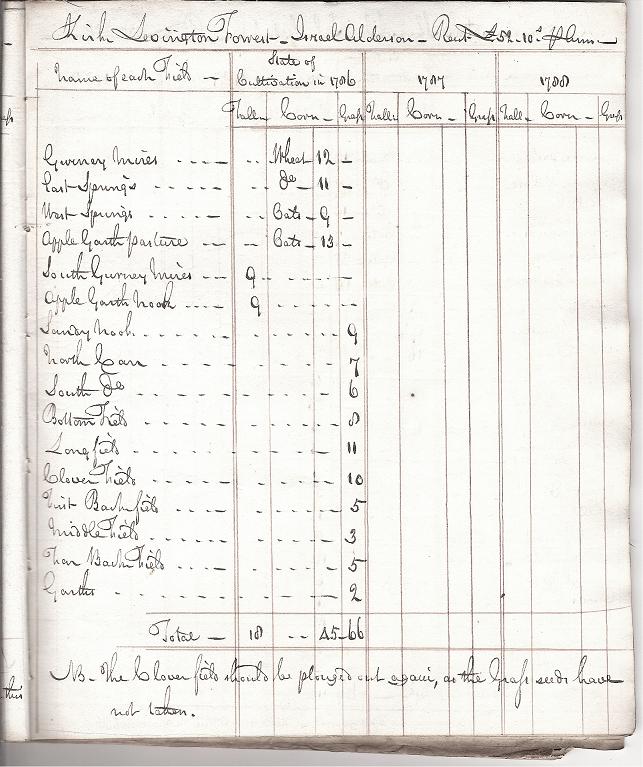 Kirk Levington Forrest - Israel Alderson - Rent £52-10s p Ann -
Name of each Field - State of Cultivation in 1786 1787 1788
Fallw Corn - Grass Fallw Corn - Grass Fallw Corn - Grass
Gurney Mires - - - - - - Wheat - 12 -
East Springs - - - - - - - Do - 11 -
West Springs - - - - - - - Oats - 9 -
Apple Garth pasture - - - - Oats - 13 -
South Gurney Mires - - 9 - - - - - -
Apple Garth Nook - - - - 9 - - - - - -
Sandy Nook - - - - - - - - - - - 9
North Carr - - - - - - - - - - - 7
South Do - - - - - - - - - - - 6
Bottom Field - - - - - - - - - - 8
Longfield - - - - - - - - - - 11
Clover Field - - - - - - - - - - 10
First Backfield - - - - - - - - - - 5
Middle Field - - - - - - - - - - 3
Far Back Field - - - - - - - - - - 5
Garths - - - - - - - - - - - 2
Total - 18 - - 45 - 66
NB - The Clover field should be plouged out again, as the Grass seeds have
not taken.